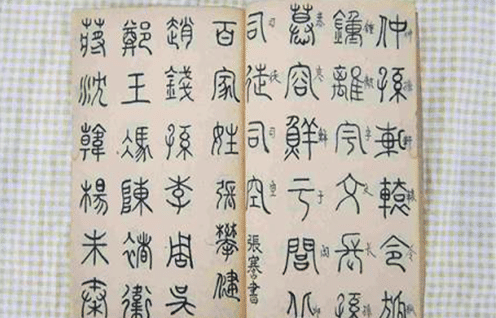 仲孫軒轅令狐
鍾離宇文長孫
慕容鮮于閭丘
司徒司空
張書
百家姓 張攀健
趙錢孫李周吳
鄭王馮陳褚衛
蔣沈韓楊朱秦